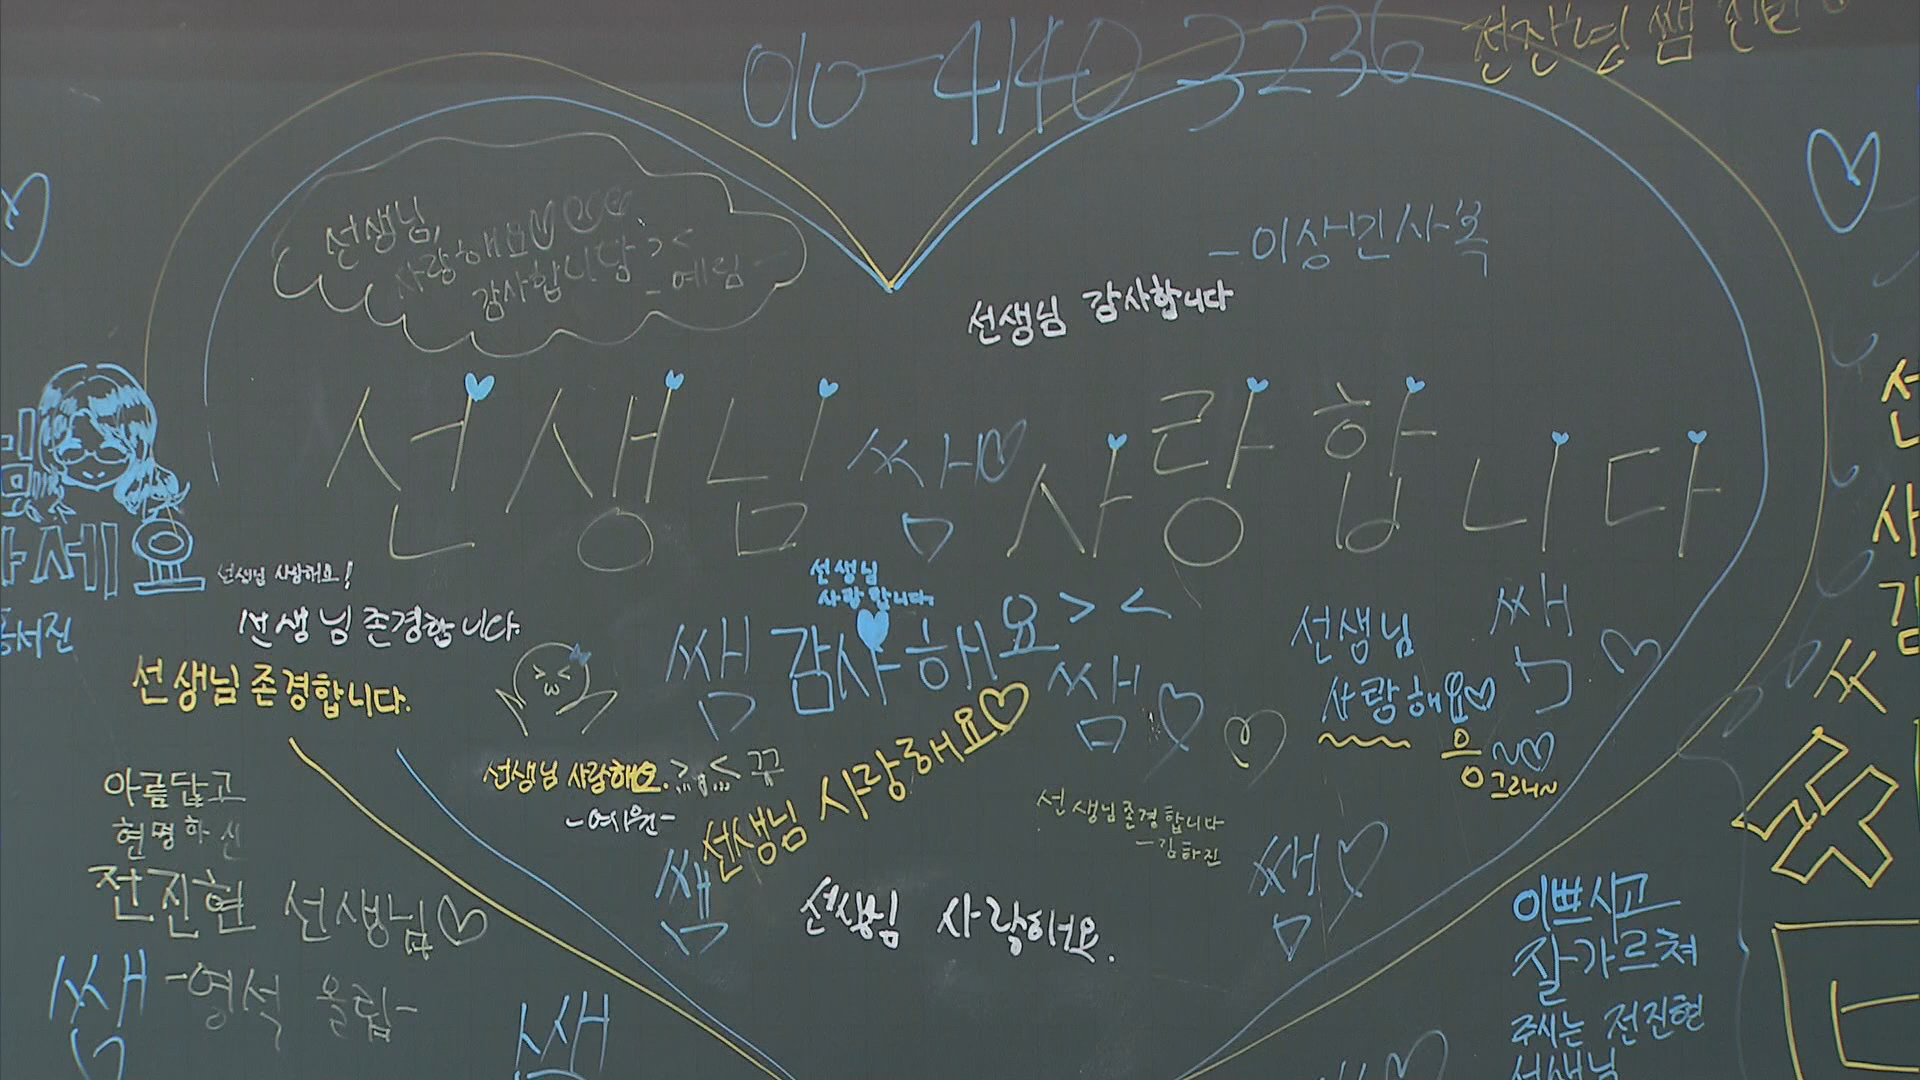 010-4140 3236
선생님,
사랑해요♡
감사합니답 > <
- 예림 -
- 이상민 사복
선생님 감사합니다
선생님 쌤♡ 사랑합니다
선생님 사랑해요!
선생님
사랑합니다.
선생님 존경합니다.
쌤 감사해요 > <
선생님
사랑해요♡
쌤♡
선생님 존경합니다.
응 ~♡
그래~
선생님 사랑해요. >
꾸
- 여시원 -
선생님 사랑해요♡
선생님 존경합니다
- 김하진
아름답고
현명하신
전진현 선생님♡
- 영석 올림 -
쌤
쌤♡
선생님 사랑해요.
이쁘시고
잘 가르쳐
주시는 전진현
선생님
쌤
쌤